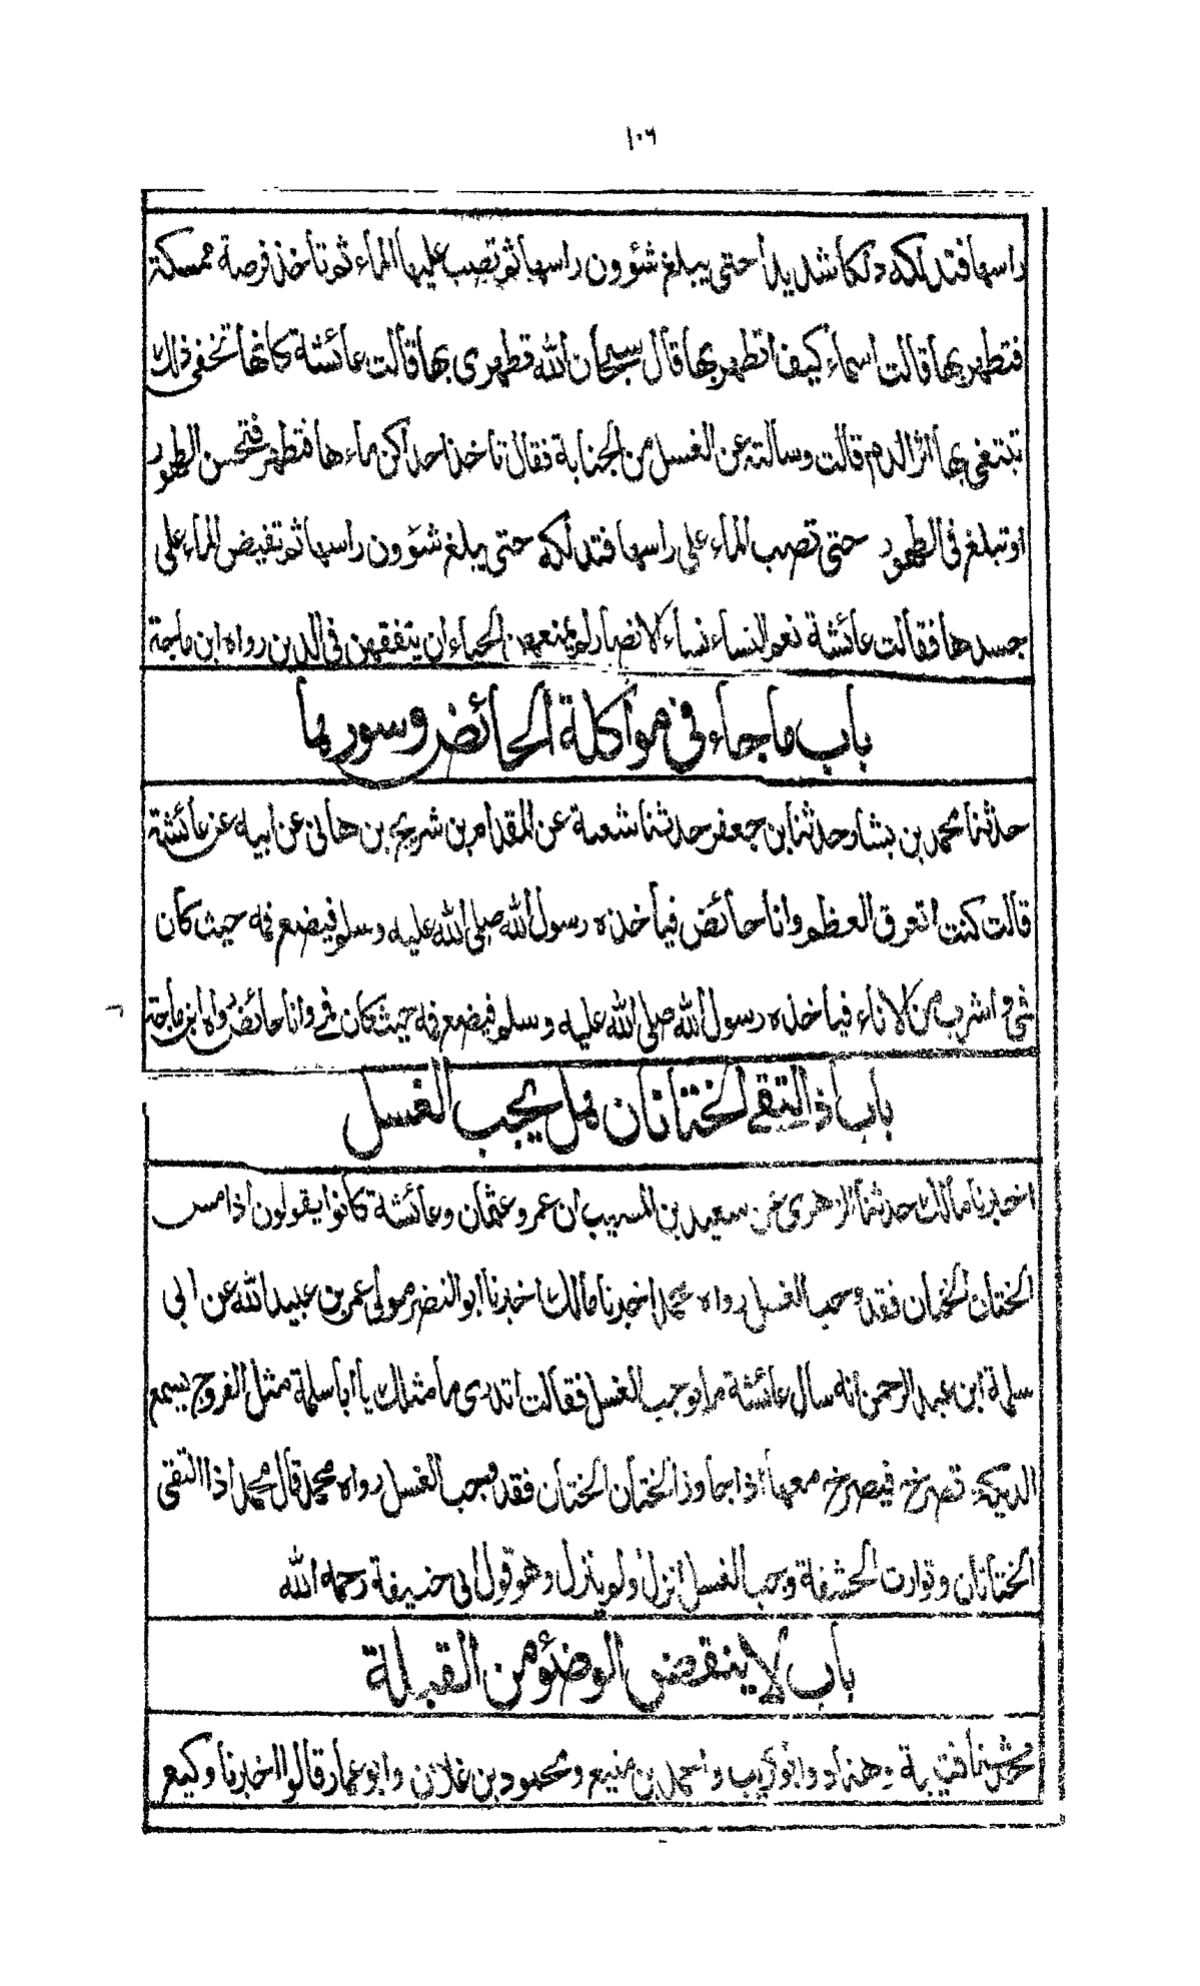 ١٠٦
راسها فتدلكه دلكا شديدا حتى يبلغ شؤون راسها ثم تصب عليها الماء ثم تأخذ فرصة ممسكة
فتطهر بها قالت اسماء كيف اتطهر بها قال سبحان الله تطهرى بها قالت عائشة كانها تخفى ذلك
تبتغى بها اثر الدم قالت وسالته عن الغسل من الجنابة فقال تاخذ احداكن ماءها فتطهر فتحسن الطهور
او تبلغ فى الطهور حتى تصب الماء على راسها فتدلكه حتى يبلغ شؤون راسها ثم تفيض الماء على
جسدها فقالت عائشة نعم النساء نساء الانصار لم يمنعهن الحياء ان يتفقهن فى الدين رواه ابن ماجة
باب ماجاء فى مواكلة الحائض وسورها
حدثنا محمد بن بشار حدثنا بن جعفر حدثنا شعبة عن المقدام بن شريح بن هانى عن ابيه عن عائشة
قالت كنت اتعرق العظم وانا حائض فيأخذه رسول الله صلى الله عليه وسلم فيضع فمه حيث كان
فمي واشرب من الاناء فيأخذه رسول الله صلى الله عليه وسلم فيضع فمه حيث كان فمي وانا حائض رواه ابن ماجة
باب اذا التقى الختانان هل يجب الغسل
اخبرنا مالك حدثنا الزهرى عن سعيد بن المسيب ان عمر وعثمان وعائشة كانوا يقولون اذا مس
الختان الختان فقد وجب الغسل رواه محمد اخبرنا مالك اخبرنا ابو النضر مولى عمر بن عبيد الله عن ابى
سلمة ابن عبد الرحمن انه سال عائشة ما يوجب الغسل فقالت اتدرى ما مثلك يا ابا سلمة مثل الفروج يسمع
الديكة تصرخ فيصرخ معها اذا جاوز الختان الختان فقد وجب الغسل رواه محمد قال محمد اذا التقى
الختانان وتوارت الحشفة وجب الغسل انزل او لم ينزل وهو قول ابى حنيفة رحمه الله
باب لا ينقض الوضؤ من القبلة
حدثنا قتيبة وهناد وابو كريب واحمد بن منيع ومحمود بن غلان وابو عمار قالوا اخبرنا وكيع